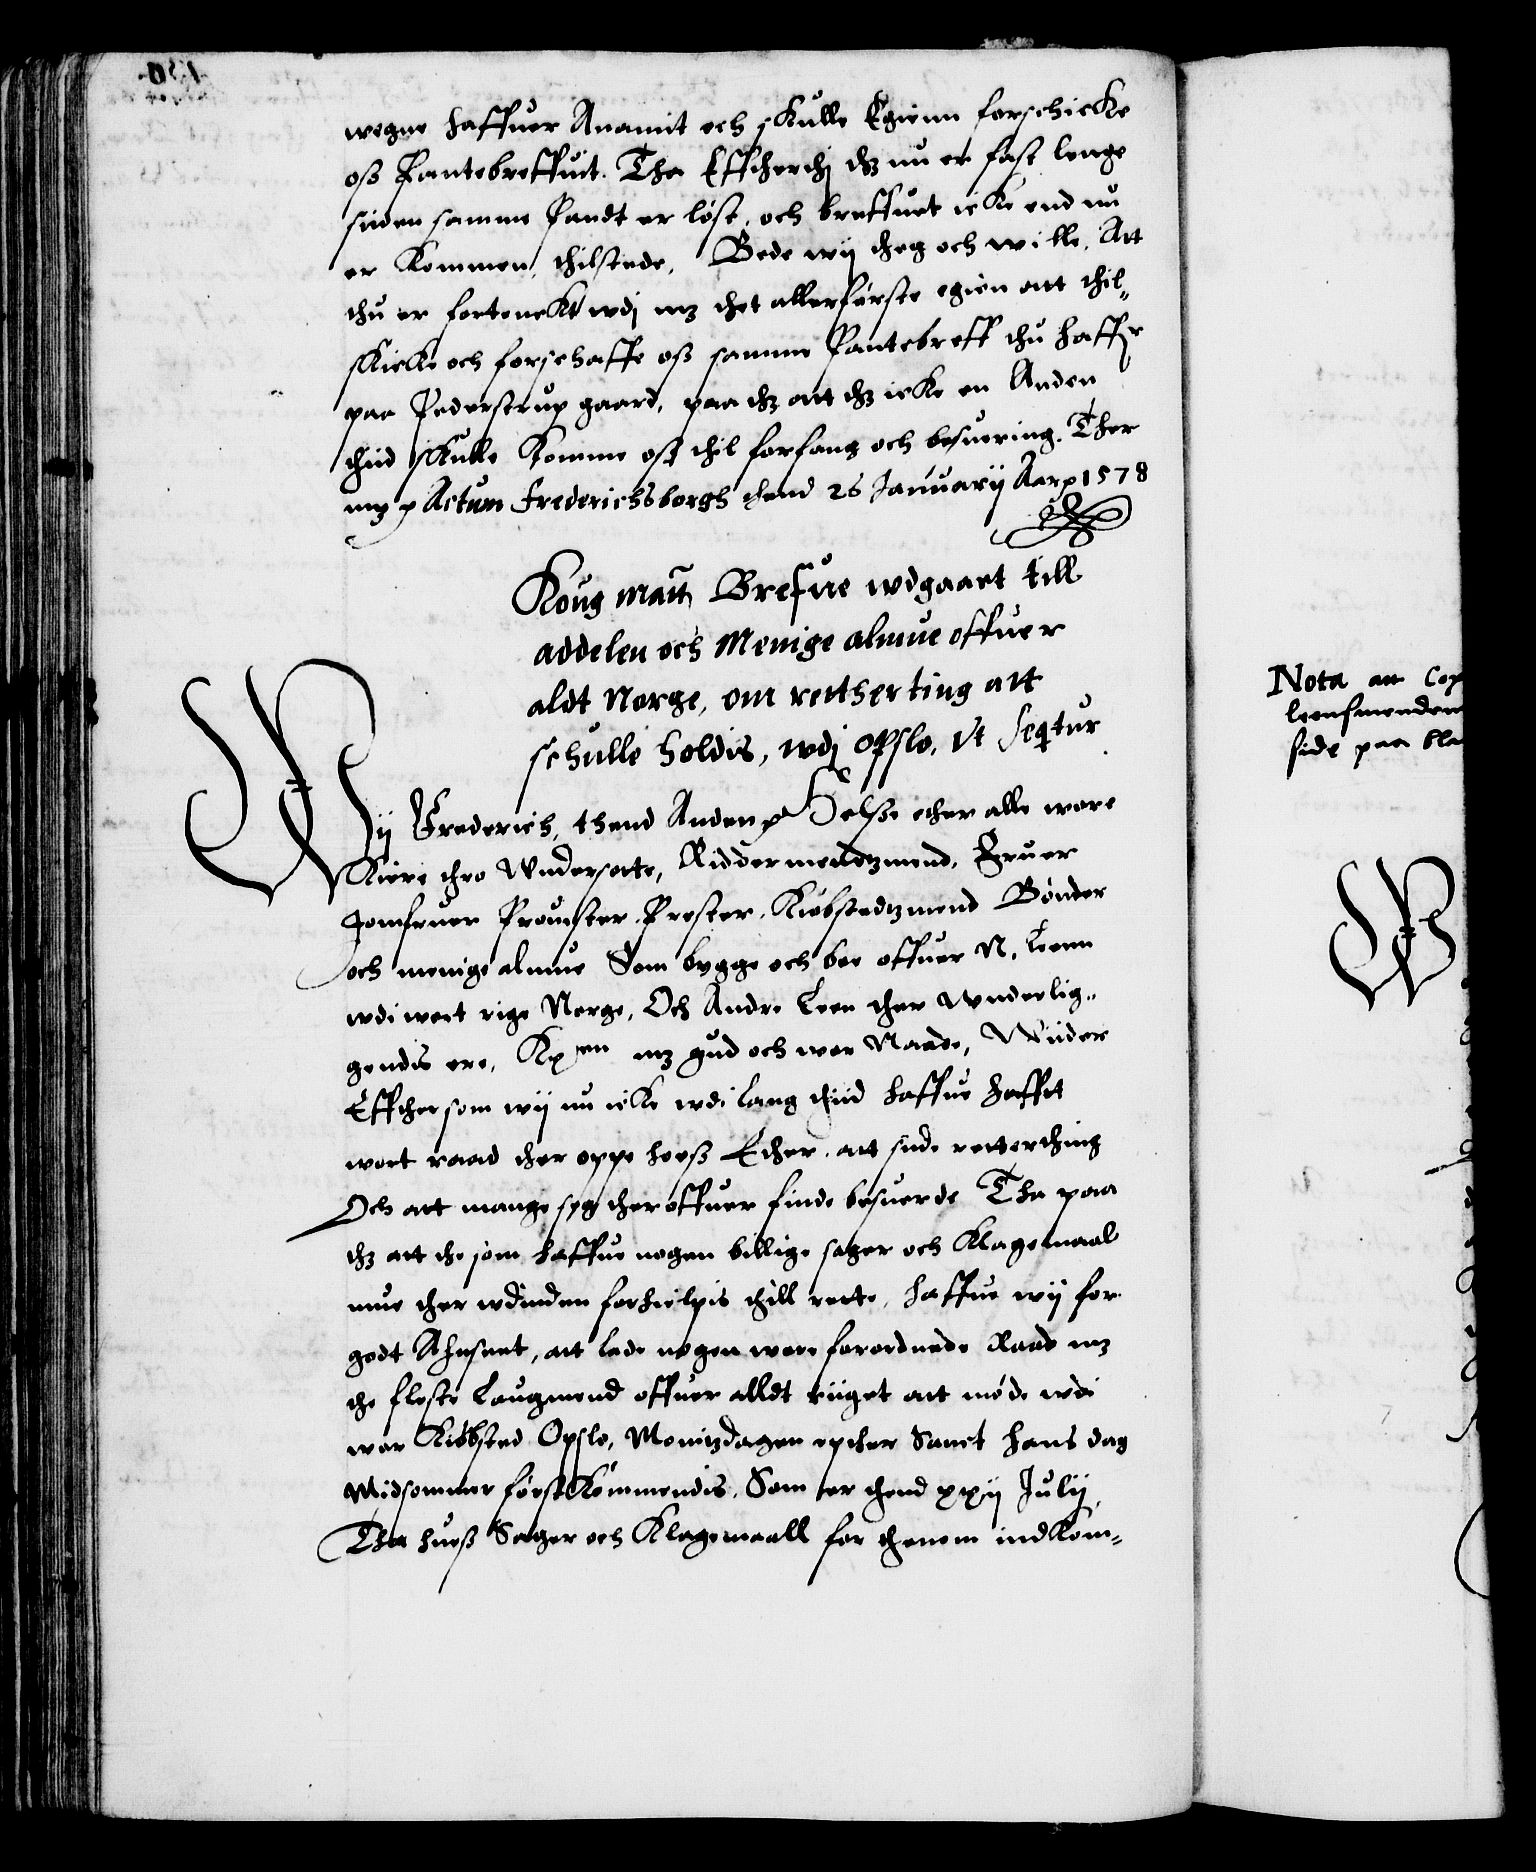 wegne haffuer Anamit och skulle Egienn forschicke
oss Pantebreffuit. Tha Efftherthj thz nu er fast lenge
siiden samme Pandt er løst, och breffuet icke end nu
er Kommen thilstede, Bede wij theg och wille, Att
thu er fortenckt wdj mz thet allerførste egien att thil„
skicke och forschaffe oss samme Pantebreff thu haffr
paa Pederstrup gaard, paa thz att thz icke en Anden
thiid skulle komme oss thil forfang och besuering. Ther
mz p Actum Frederichsborgh thend 26 Januarij Aar p 1578
Kong matt Brefue wdgaaet till
addelen och Menige almue offuer
aldt Norge, om rettherting att
schulle holdis, wdj Opslo, vt Seqtur
Wij Frederich, thend Anden p Helsse ether alle wore
Kiere thro Wndersotte, Riddermendtzmend, Fruer
Jomfruer Prouster, Prester, Kiøbstedtzmend Bønder
och menige almue Som bygge och boe offuer N. Leenn
wdi wort rige Norge, Och Andre Leen ther Wnderlig„
gendis ere, Kp en mz gud och wor Naade, Wiider
Effthersom wij nu icke wdi lang thiid haffue hafft
wort raad ther oppe hooss Ether, att side retterthing
Och att mange seg ther offuer finde besuerde Tha paa
thz att the som haffue nogen billige sager och Klagemaal
mue ther wdinden forhielpis thill rette, haffue wij for
godt Ahnseet, att lade nogen wore forordnede Raad mz
the fleste Laugmend offuer alldt riiget att møde wdi
wor Kiøbsted Opslo, Montzdagen epther Sanct Hans dag
Midsommer førstkommendis, Som er thend xxij Julij,
Tha huess Sager och Klagemaall for thenom indkom„
Nota att Cop
leensmenden
side paa bla
W